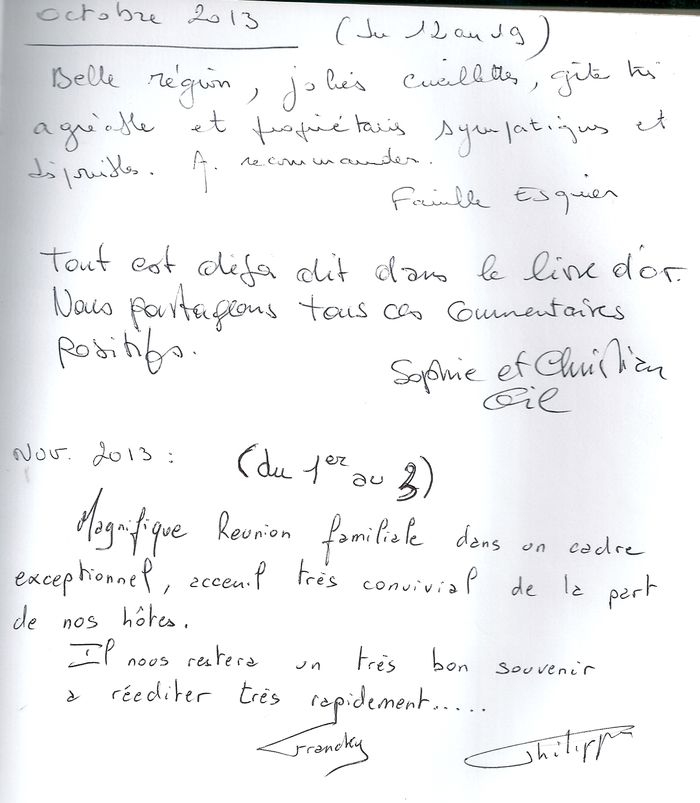 octobre 2013 (du 12 au 19)
Belle région, jolies cueillettes, gîte très
agréable et propriétaires sympatiques et
disponibles. A recommander.
Famille Esquier
Tout est déjà dit dans le livre d'or.
Nous partageons tous ces commentaires
positifs.
Sophie et Christian
Gil
Nov. 2013 : (du 1er au 3)
Magnifique Reunion familiale dans un cadre
exceptionnel, acceuil très convivial de la part
de nos hôtes.
Il nous restera un très bon souvenir
a rééditer très rapidement.....
Francky Philippe